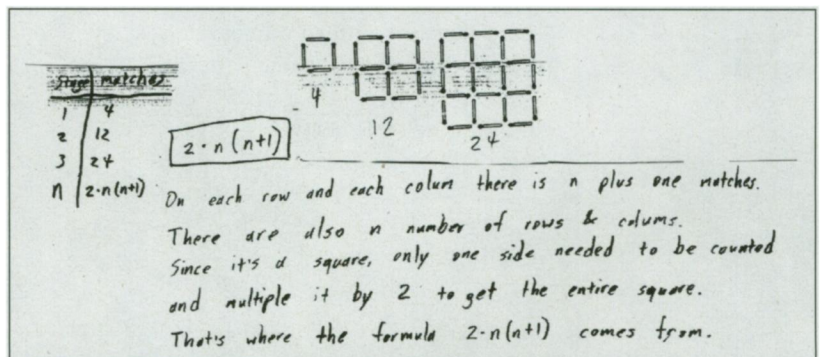 Stage matches
1 4
2 12
3 24
n 2·n(n+1)
4
12
24
2·n(n+1)
On each row and each colum there is n plus one matches.
There are also n number of rows & colums.
Since it's a square, only one side needed to be counted
and multiple it by 2 to get the entire square.
That's where the formula 2·n(n+1) comes from.